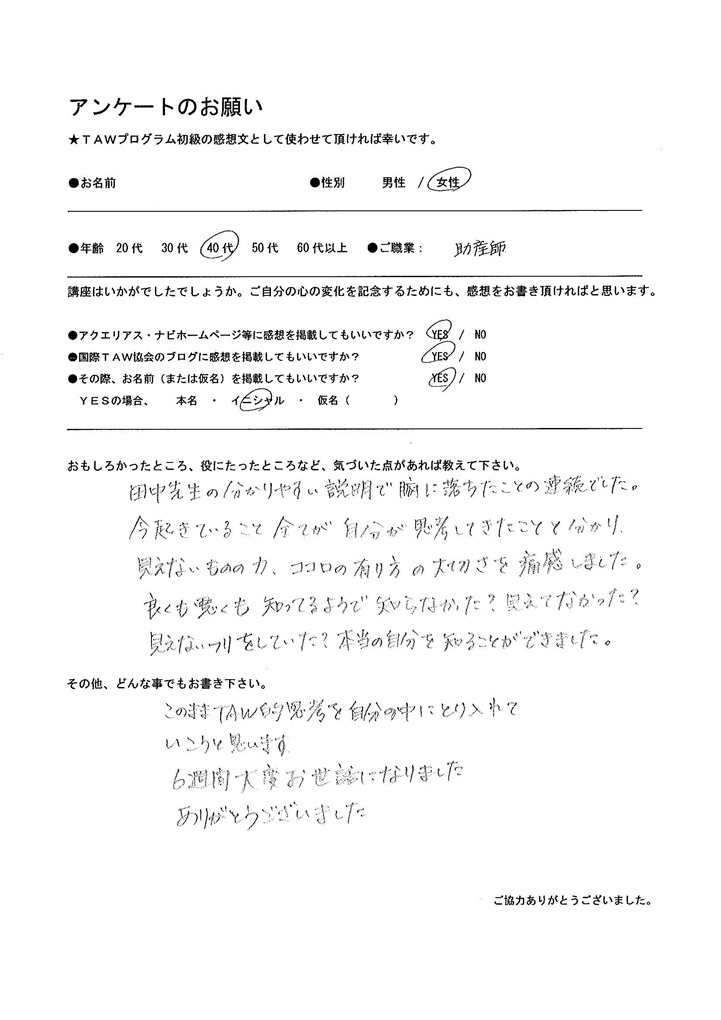 アンケートのお願い
★ＴＡＷプログラム初級の感想文として使わせて頂ければ幸いです。
●お名前 ●性別 男性 / 女性
●年齢 20代 30代 40代 50代 60代以上 ●ご職業： 助産師
講座はいかがでしたでしょうか。ご自分の心の変化を記念するためにも、感想をお書き頂ければと思います。
●アクエリアス・ナビホームページ等に感想を掲載してもいいですか？ YES / NO
●国際ＴＡＷ協会のブログに感想を掲載してもいいですか？ YES / NO
●その際、お名前（または仮名）を掲載してもいいですか？ YES / NO
ＹＥＳの場合、 本名 ・ イニシャル ・ 仮名（ ）
おもしろかったところ、役にたったところなど、気づいた点があれば教えて下さい。
田中先生の分かりやすい説明で腑に落ちたことの連続でした。
今起きていること全てが自分が思考してきたことと分かり、
見えないものの力、ココロの有り方の大切さを痛感しました。
良くも悪くも知ってるようで知らなかった？見えてなかった？
見えないフリをしていた？本当の自分を知ることができました。
その他、どんな事でもお書き下さい。
このままTAW的思考を自分の中にとり入れて
いこうと思います
6週間大変お世話になりました
ありがとうございました
ご協力ありがとうございました。